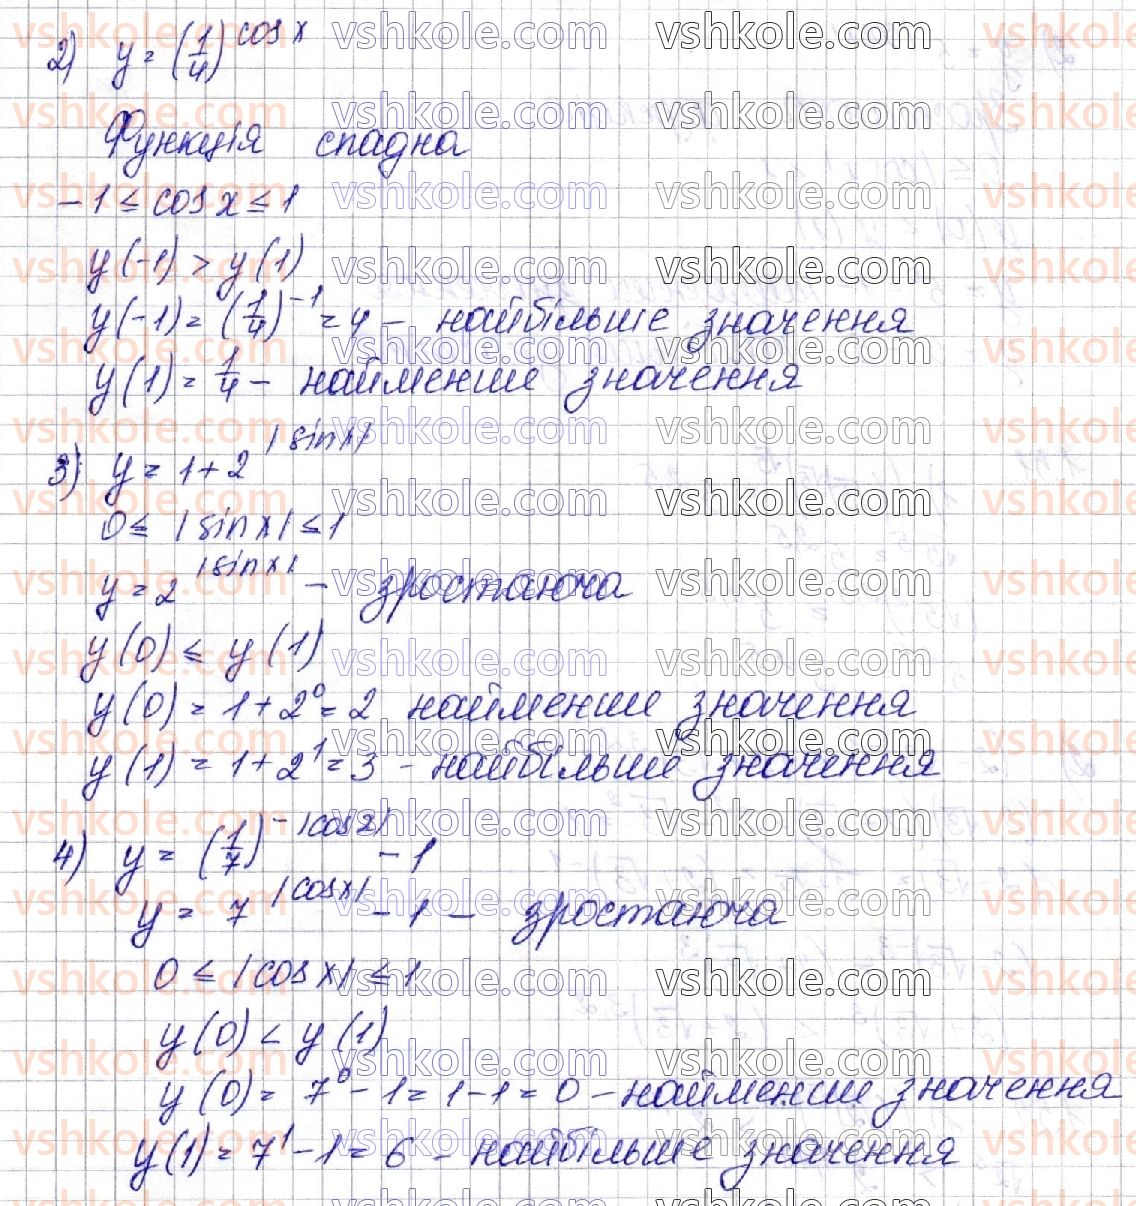 2) y = (1/4)^cos x
Функція спадна
-1 ≤ cos x ≤ 1
y(-1) > y(1)
y(-1) = (1/4)^-1 = 4 - найбільше значення
y(1) = 1/4 - найменше значення
3) y = 1 + 2^|sin x|
0 ≤ |sin x| ≤ 1
y = 2^|sin x| - зростаюча
y(0) ≤ y(1)
y(0) = 1 + 2^0 = 2 найменше значення
y(1) = 1 + 2^1 = 3 - найбільше значення
4) y = (1/7)^-|cos x| - 1
y = 7^|cos x| - 1 - зростаюча
0 ≤ |cos x| ≤ 1
y(0) < y(1)
y(0) = 7^0 - 1 = 1 - 1 = 0 - найменше значення
y(1) = 7^1 - 1 = 6 - найбільше значення
vshkole.com